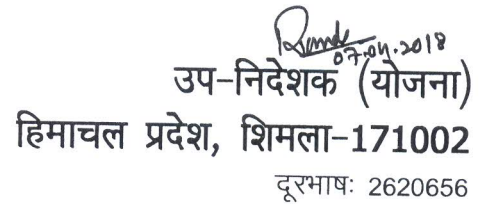 07.04.2018
उप-निदेशक (योजना)
हिमाचल प्रदेश, शिमला-171002
दूरभाषः 2620656